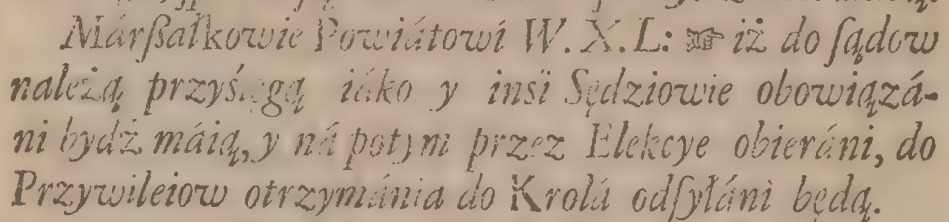 Márſzałkowie Powiátowi W. X. L: ☞ iż do ſądow
należą, przyśęgą iáko y inśi Sędziowie obowiązá-
ni bydź máią, y ná potym przez Elekcye obieráni, do
Przywileiow otrzymánia do Krolá odſyłáni będą.